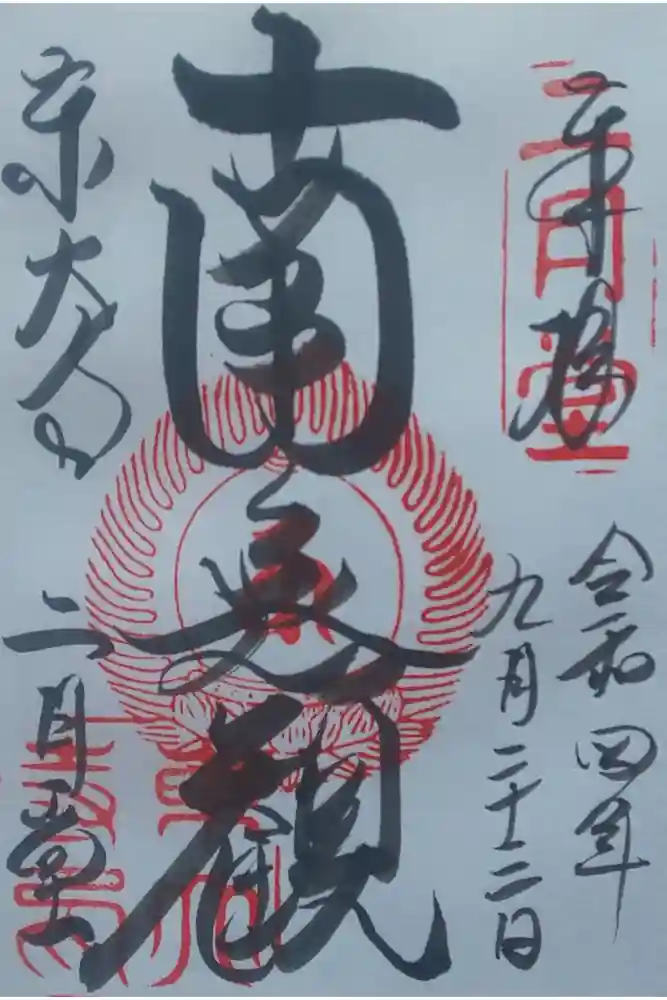 奉拝
二月堂
令和四年
九月二十二日
南無観
東大寺
二月堂